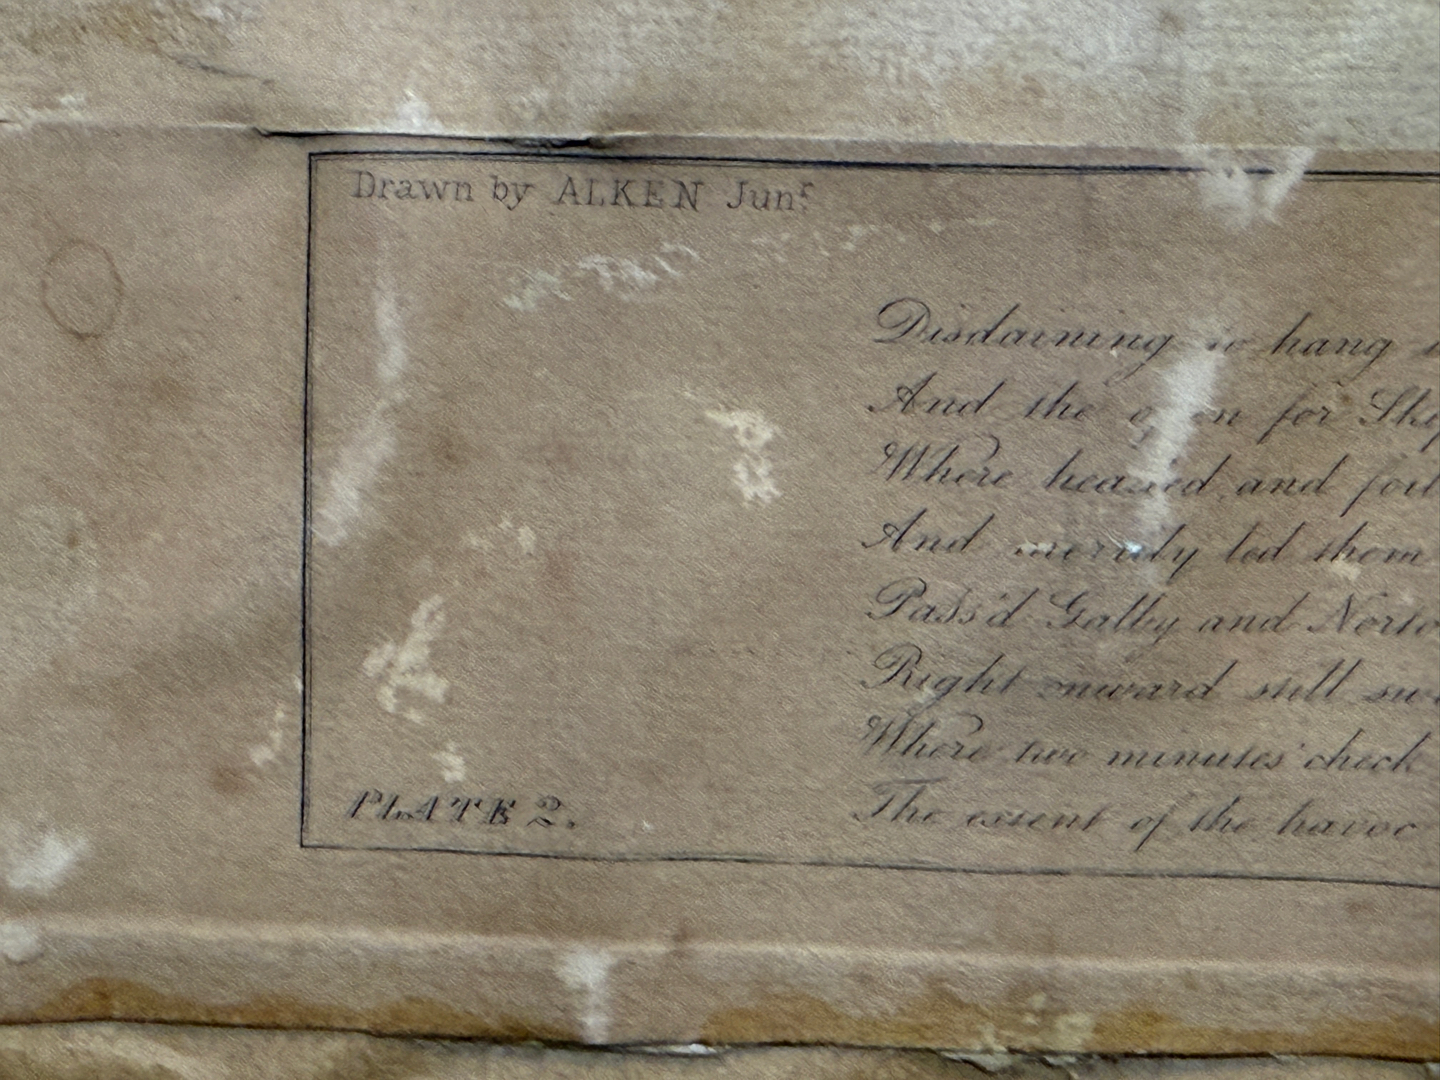 Drawn by ALKEN Junr
Disdaining to hang
And the open for
Where headed and
And merrily led them
Pass'd Galby and
Right onward still
Where two minutes check
The extent of the havoc
PLATE 2.